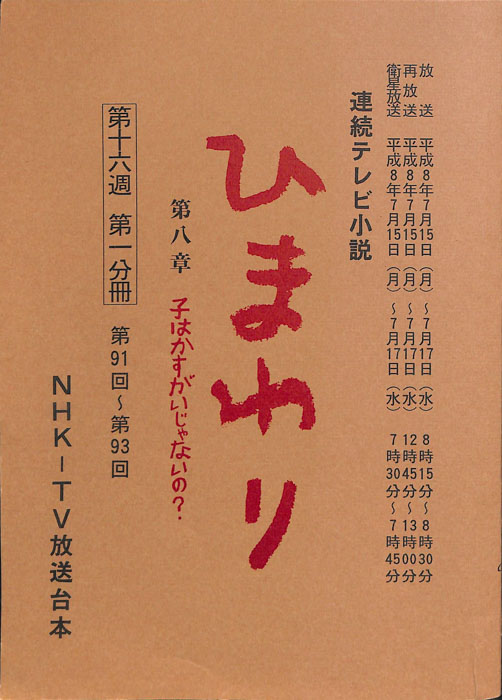 放送 平成8年7月15日（月）～7月17日（水） 8時15分～8時30分
再放送 平成8年7月15日（月）～7月17日（水） 12時45分～13時00分
衛星放送 平成8年7月15日（月）～7月17日（水） 7時30分～7時45分
連続テレビ小説
ひまわり
第八章 子はかすがいじゃないの？
第十六週 第一分冊 第91回～第93回
NHK-TV放送台本